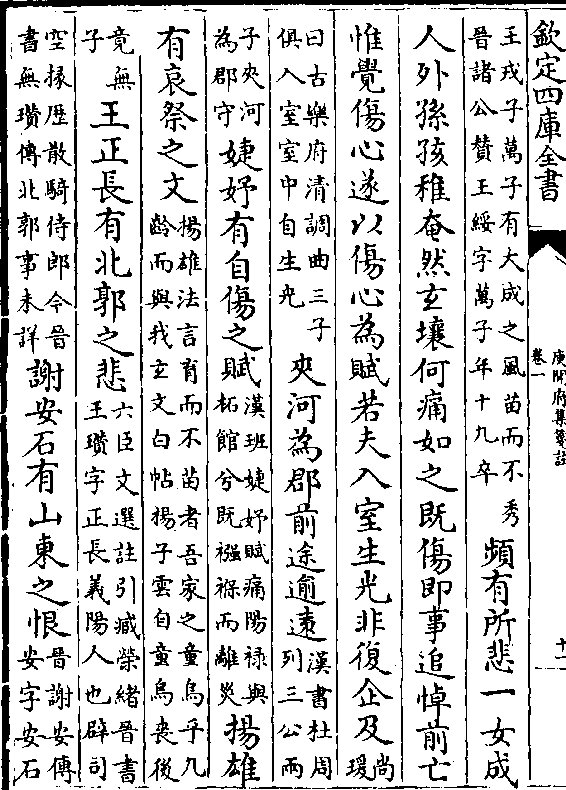 欽定四庫全書
庾開府集箋註
卷一
十一
王戎子萬子有大成之風苗而不秀
晉諸公贊王綏字萬子年十九卒
頻有所悲一女成
人外孫孩稚奄然玄壤何痛如之既傷即事追悼前亡
惟覺傷心遂以傷心為賦若夫入室生光非復企及
尚
瑗
曰古樂府清調曲三子
俱入室室中自生光
夾河為郡前途逾遠
漢書杜周
列三公兩
子夾河
為郡守
婕妤有自傷之賦
漢班婕妤賦痛陽禄與
柘館兮既襁褓而離災
揚雄
有哀祭之文
揚雄法言育而不苗者吾家之童烏乎九
齡而與我玄文白帖揚子雲自童烏喪後
竟無
子
王正長有北郭之悲
六臣文選註引臧榮緒晉書
王瓚字正長義陽人也辟司
空掾歴散騎侍郎今晉
書無瓚傳北郭事未詳
謝安石有山東之恨
晉謝安傳
安字安石